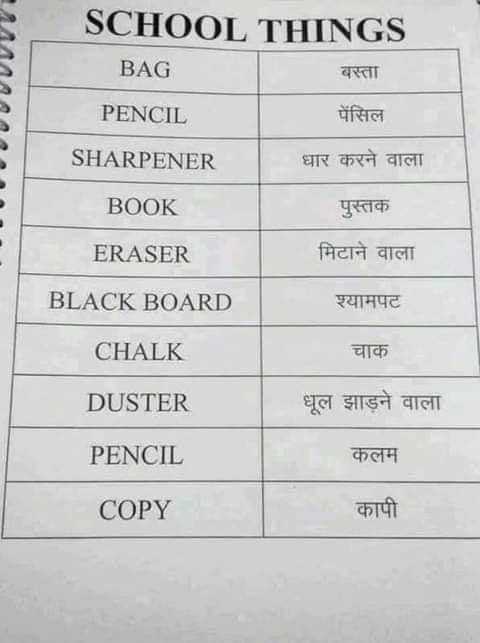 SCHOOL THINGS
BAG बस्ता
PENCIL पेंसिल
SHARPENER धार करने वाला
BOOK पुस्तक
ERASER मिटाने वाला
BLACK BOARD श्यामपट
CHALK चाक
DUSTER धूल झाड़ने वाला
PENCIL कलम
COPY कापी